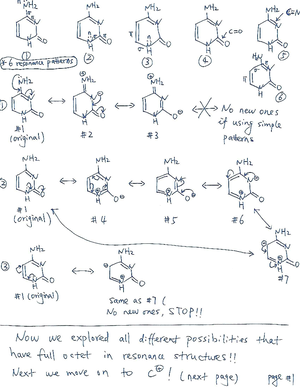 NH₂ NH₂ NH₂ NH₂ NH₂ C=N
C=O
① ② ③ ④ ⑤
#6 resonance patterns
⑥
① NH₂ NH₂ NH₂
No new ones
if using simple
patterns
#1 #2 #3
(original)
② NH₂ NH₂ NH₂ NH₂
#1 (original) #4 #5 #6
③ NH₂ NH₂ NH₂
#1 (original) same as #7 (
No new ones, STOP!!
#7
Now we explored all different possibilities that
have full octet in resonance structures!!
Next we move on to C⊕! (next page) page #1